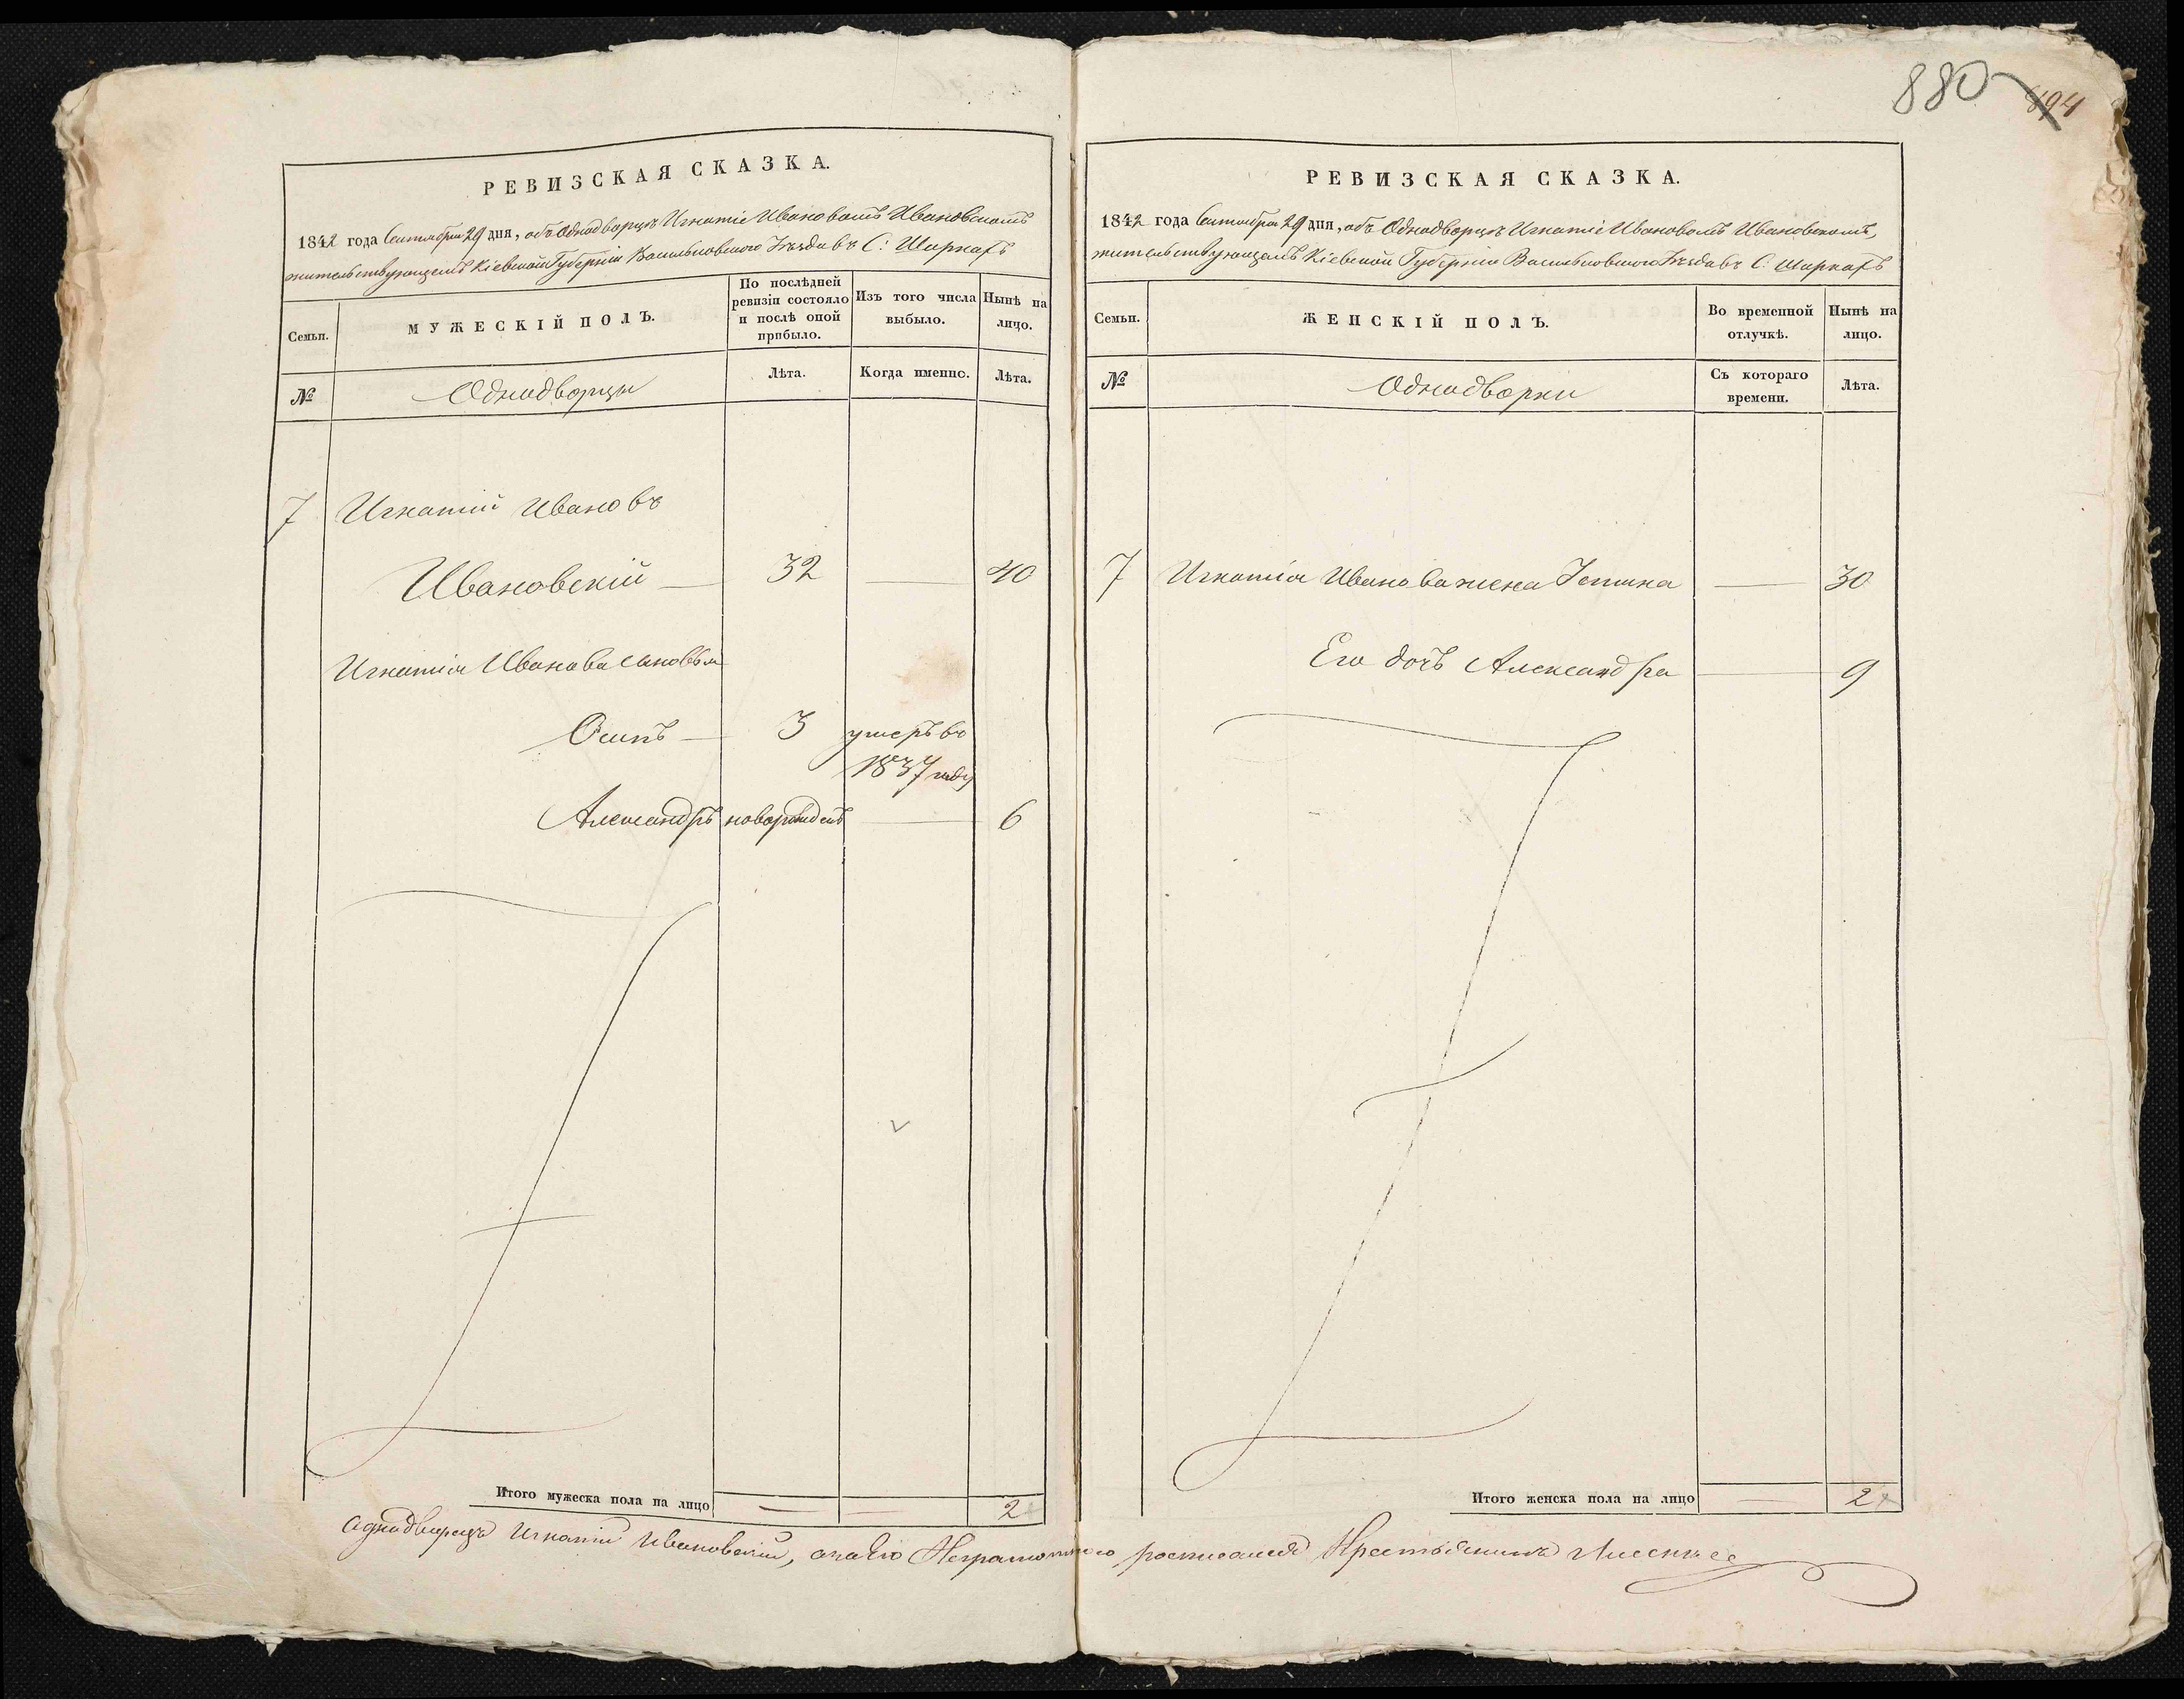 880 894
РЕВИЗСКАЯ СКАЗКА.
1842 года Сентября 29 дня, объ Однодворцѣ Игнатіе Ивановомъ Ивановскомъ
жительствующемъ Кіевской Губерніи Васильковского Уѣзда въ С: Шаркахъ
Семьи.
МУЖЕСКІЙ ПОЛЪ.
По послѣдней ревизіи состояло и послѣ оной прибыло.
Изъ того числа выбыло.
Нынѣ на лицо.
№
Однодворцы
Лѣта.
Когда именно.
Лѣта.
7 Игнатій Ивановъ
Ивановскій — 32 — 40
Игнатія Иванова сыновья
Осипъ — 3 умеръ въ
1837 году
Александръ новорожденъ — 6
Итого мужеска пола на лицо — — 2
РЕВИЗСКАЯ СКАЗКА.
1842 года Сентября 29 дня, объ Однодворцѣ Игнатіе Ивановомъ Ивановскомъ,
жительствующемъ Кіевской Губерніи Васильковского Уѣзда въ С. Шаркахъ
Семьи.
ЖЕНСКІЙ ПОЛЪ.
Во временной отлучкѣ.
Нынѣ на лицо.
№
Однодворки
Съ котораго времени.
Лѣта.
7 Игнатія Иванова жена Устина — 30
Его дочь Александра — 9
Итого женска пола на лицо — 2
Однодворецъ Игнатій Ивановскій, а за его Неграмотного росписался Крестьянинъ